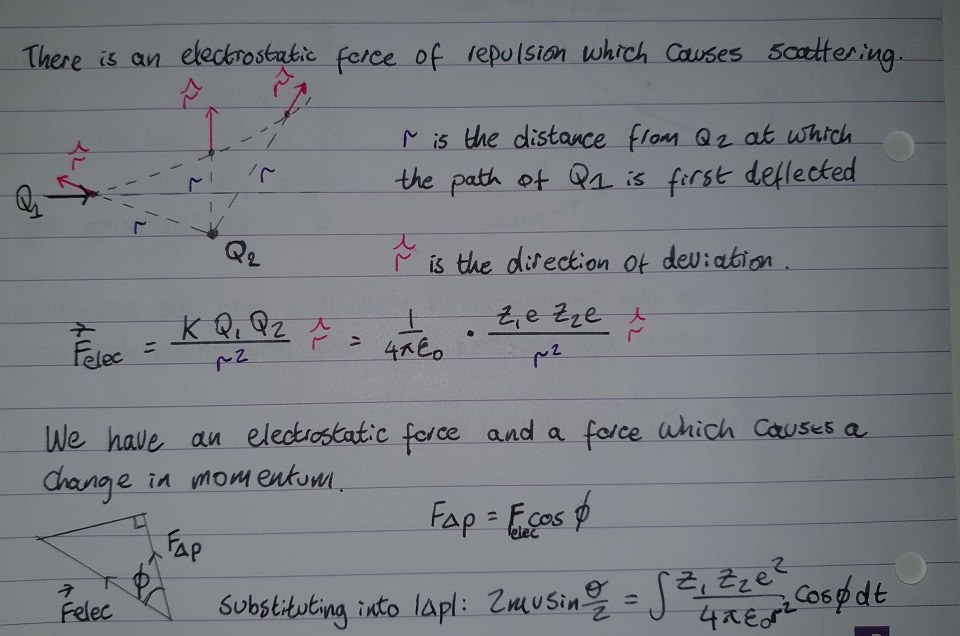 There is an electrostatic force of repulsion which causes scattering.
r̂ r̂
r̂
r is the distance from Q2 at which
Q1 r r r
the path of Q1 is first deflected
Q2
r̂ is the direction of deviation.
F⃗elec = K Q1 Q2 / r² r̂ = 1 / 4πε0 · Z1e Z2e / r² r̂
We have an electrostatic force and a force which causes a
change in momentum.
FΔp = Felec cos ϕ
FΔp
F⃗elec ϕ
Substituting into |Δp|: 2mv sin θ/2 = ∫ Z1 Z2 e² / 4πε0r² cosϕ dt